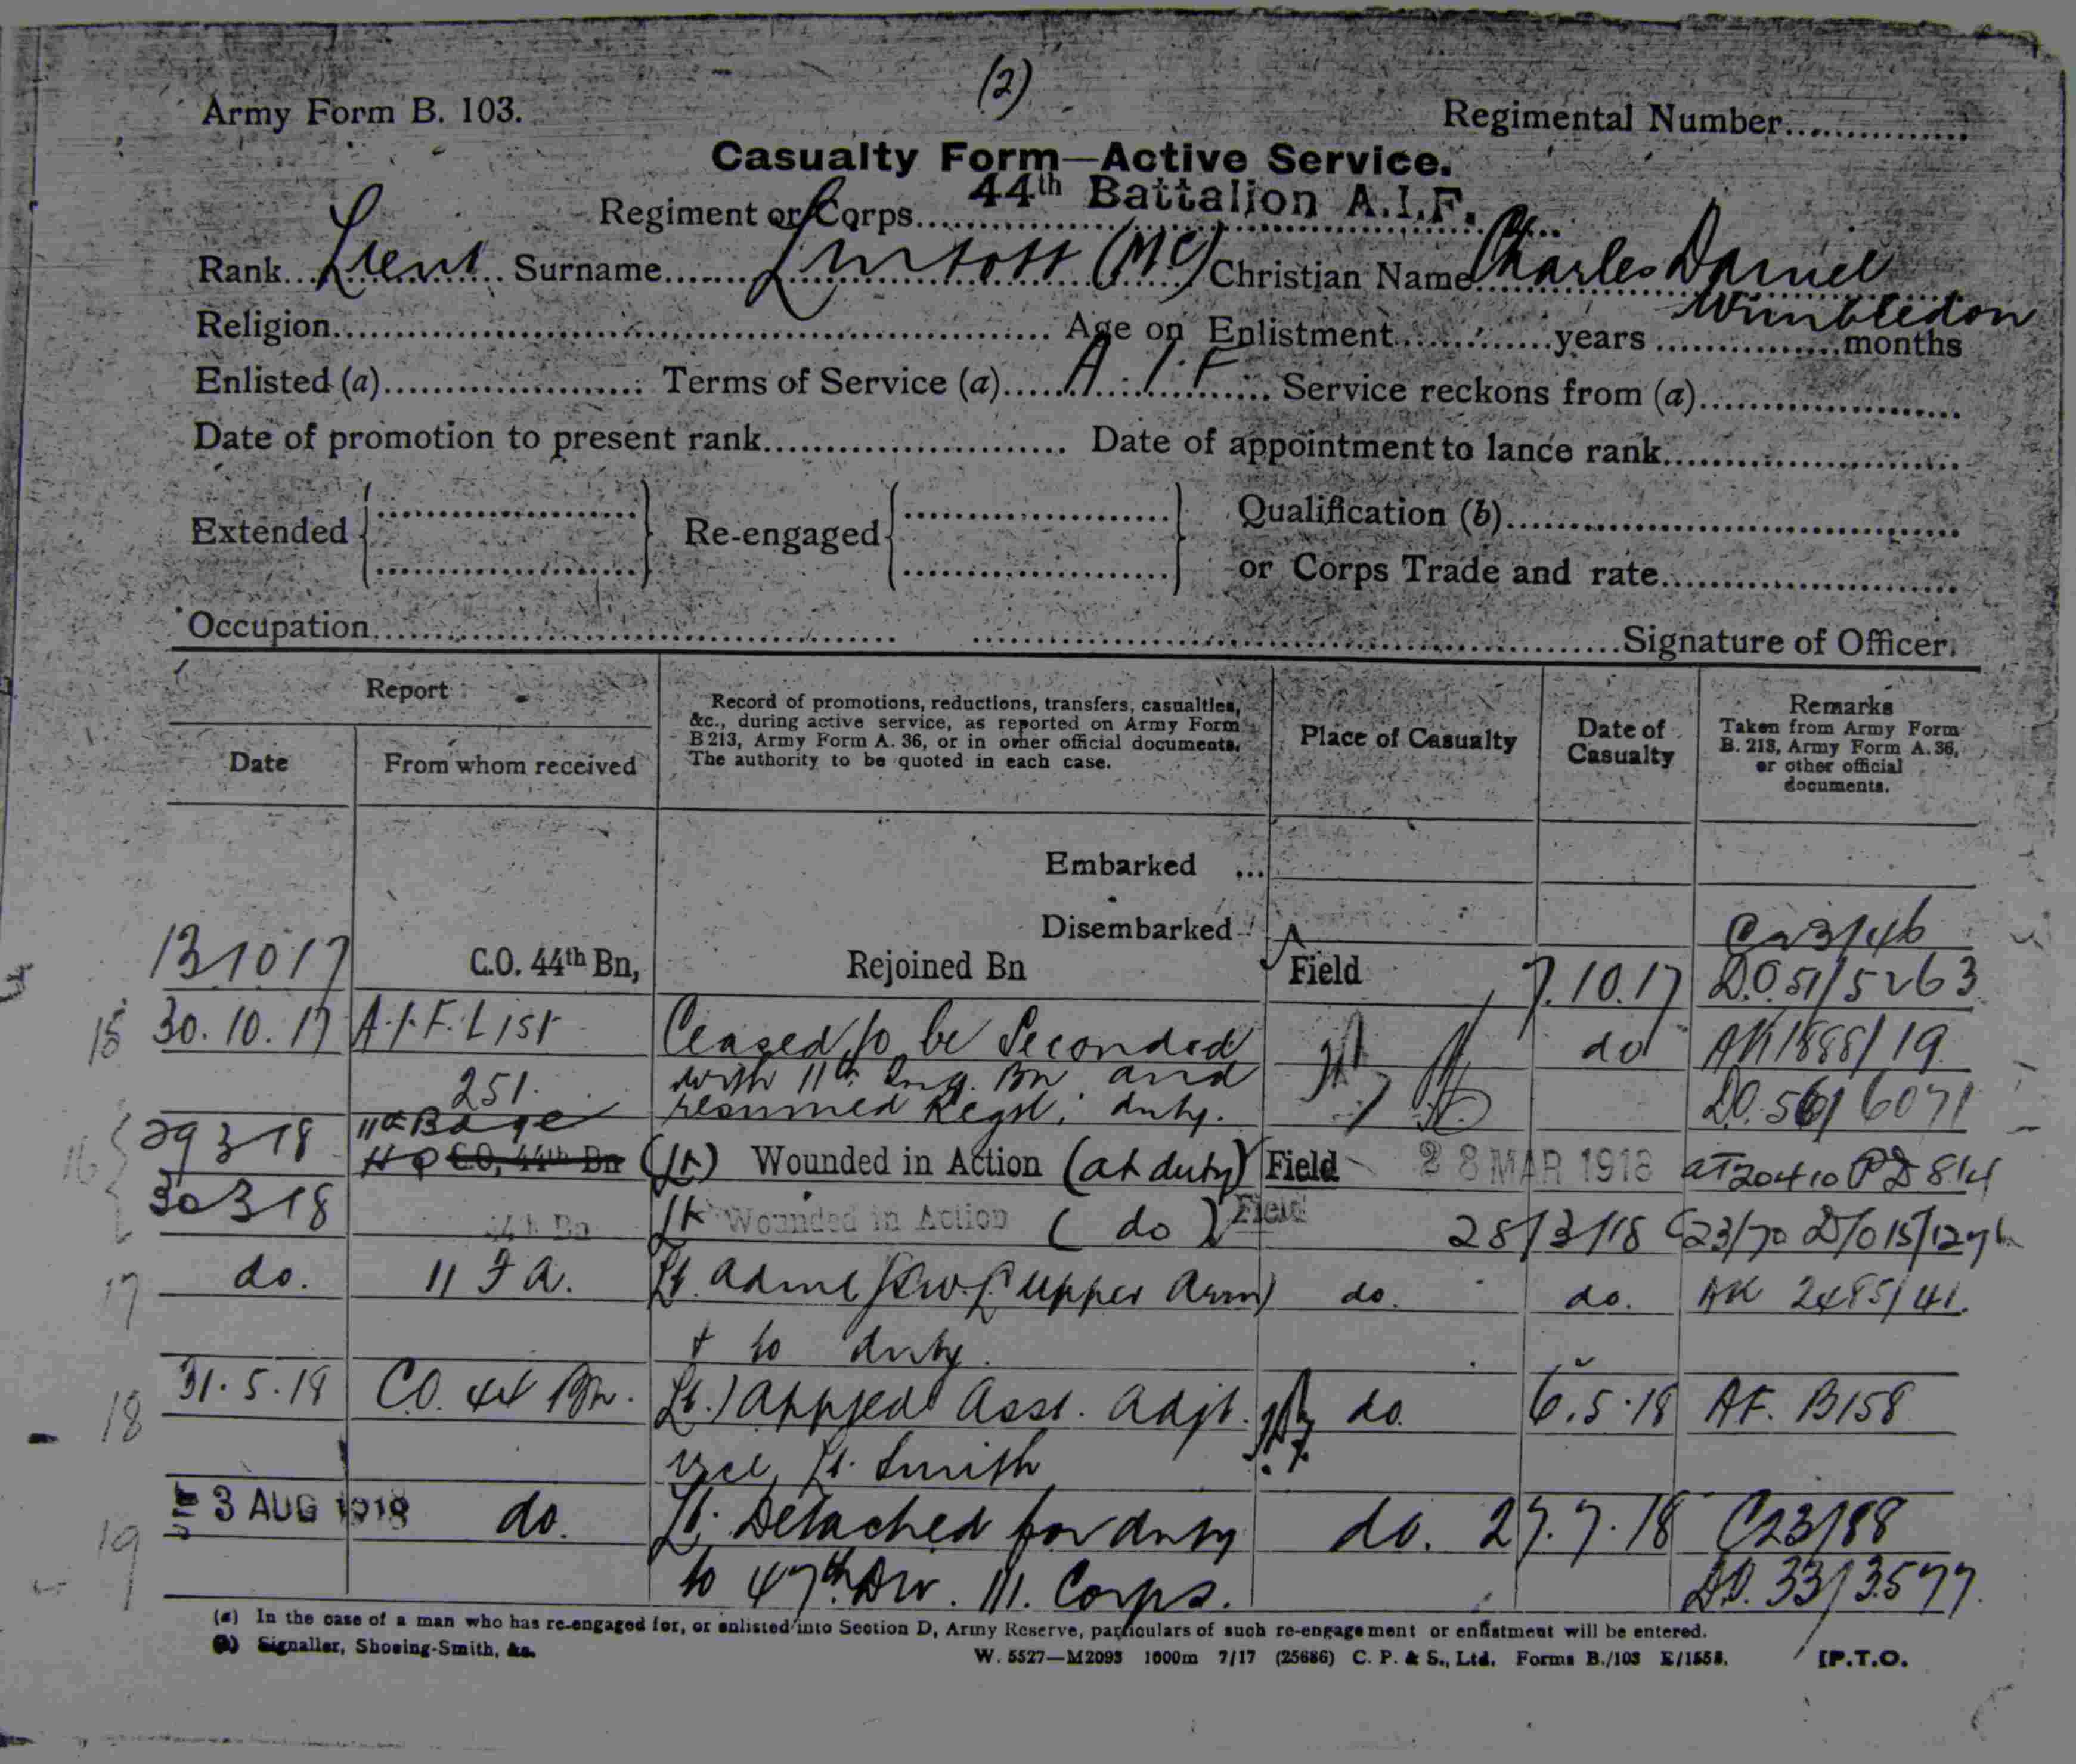 (2)
Army Form B. 103.
Regimental Number...............
Casualty Form—Active Service.
Regiment or Corps 44th Battalion A.I.F.
Rank Lieut Surname Lintott (MC) Christian Name Charles Daniel
Wimbledon
Religion Age on Enlistment years months
Enlisted (a) Terms of Service (a) A.I.F Service reckons from (a)
Date of promotion to present rank Date of appointment to lance rank
Extended Re-engaged Qualification (b)
or Corps Trade and rate
Occupation Signature of Officer.
Report
Date From whom received
Record of promotions, reductions, transfers, casualties,
&c., during active service, as reported on Army Form
B 213, Army Form A. 36, or in other official documents.
The authority to be quoted in each case.
Place of Casualty
Date of
Casualty
Remarks
Taken from Army Form
B. 213, Army Form A. 36,
or other official
documents.
Embarked ...
Disembarked
13 10 17 C.O. 44th Bn, Rejoined Bn Field 7.10.17 D.O. 51/5263
15 30.10.17 A.I.F. List Ceased to be Seconded do AK1888/19
251. with 11th Trng. Bn and
resumed Regtl. duty. D.O. 56/6071
16 29 3 18 11th Bdge
HQ C.O. 44th Bn (Lt) Wounded in Action (at duty) Field 28 MAR 1918
30 3 18 44th Bn Lt Wounded in Action (do) Field 28/3/18 C23/70
17 do. 11 F A. Lt. Adme (SW. L upper Arm) do. do. AK 2485/41.
+ to duty.
18 31.5.18 C.O. 44 Bn. Lt.) Appted Asst. Adjt. do. 6.5.18 AF. B158
vice Lt. Smith
19 3 AUG 1918 do. Lt. Detached for duty do. 27.7.18 C23/88
to 47th Div. III. Corps. D.O. 33/3577.
(a) In the case of a man who has re-engaged for, or enlisted into Section D, Army Reserve, particulars of such re-engagement or enlistment will be entered.
(b) Signaller, Shoeing-Smith, &c.
W. 5527—M2093 1000m 7/17 (25686) C. P. & S., Ltd. Forms B./103 E/1558. [P.T.O.